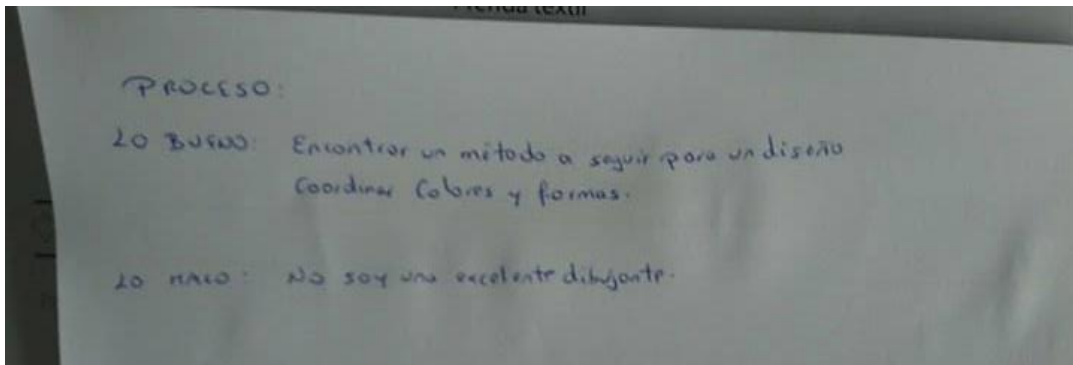 Prenda textil
PROCESO:
LO BUENO: Encontrar un método a seguir para un diseño
Coordinar Colores y formas.
LO MALO: No soy una excelente dibujante.